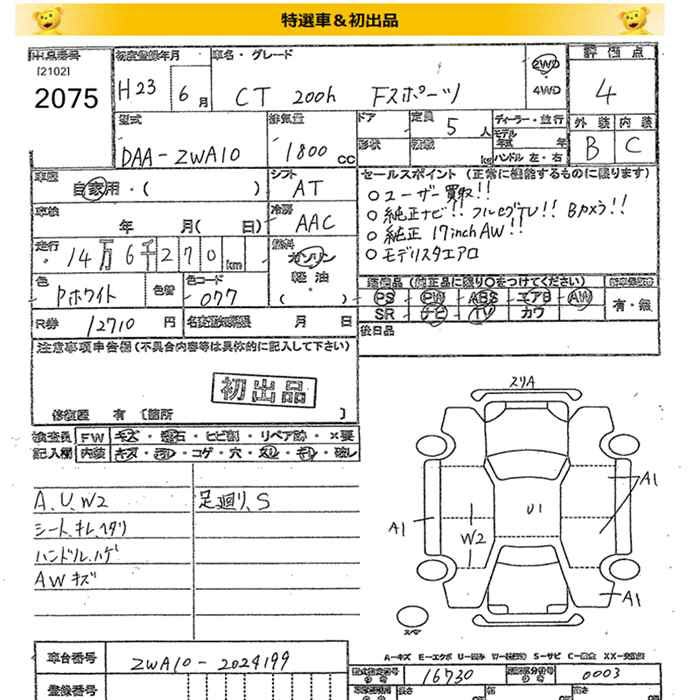 特選車&初出品
出品番号
[2102]
2075
初度登録年月
H23 6月
車名・グレード
CT 200h Fスポーツ
2WD
4WD
評価点
4
外装 内装
B C
型式
DAA-ZWA10
排気量
1800 CC
ドア
形状
定員
5 人
積載
kg
ディーラー・並行
モデル
年式 年
ハンドル 左・右
車歴
自家用・( )
シフト
AT
車検
年 月( 日)
冷房
AAC
走行
14万6千270km
燃料
ガソリン
軽油
( )
色
Pホワイト
色替
色コード
077
R券 12710 円
名変期限 月 日
セールスポイント (正常に機能するものに限ります)
○ユーザー買取!!
○純正ナビ!! フルセグTV!! Bカメラ!!
○純正 17inchAW!!
○モデリスタエアロ
装備品(純正品に限り○をつけてください)
PS PW ABS エアB AW
SR ナビ TV カワ
有・無
後日品
注意事項申告欄(不具合内容等は具体的に記入して下さい)
初出品
修復歴 有〔箇所 〕
検査員 FW キズ・飛石・ヒビ割・リペア跡・×要
記入欄 内装 キズ・コゲ・穴・破レ
A.U.W2
シート.キレ.ヘタリ
ハンドル.ハゲ
AWキズ
足廻り.S
スリA
A1
A1
U1
W2
A1
スペア
A-キズ E-エクボ U-凹み S-サビ
車台番号
ZWA10-2024199
登録番号
16730
0003